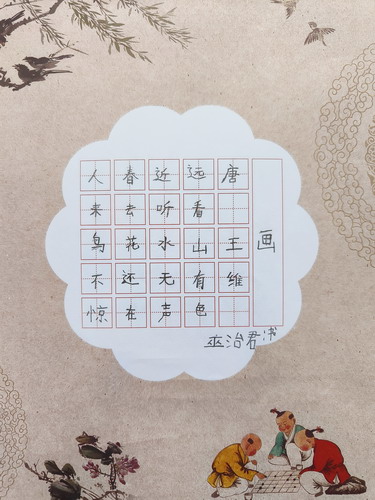 画
唐 王维
远看山有色
近听水无声
春去花还在
人来鸟不惊
巫治君